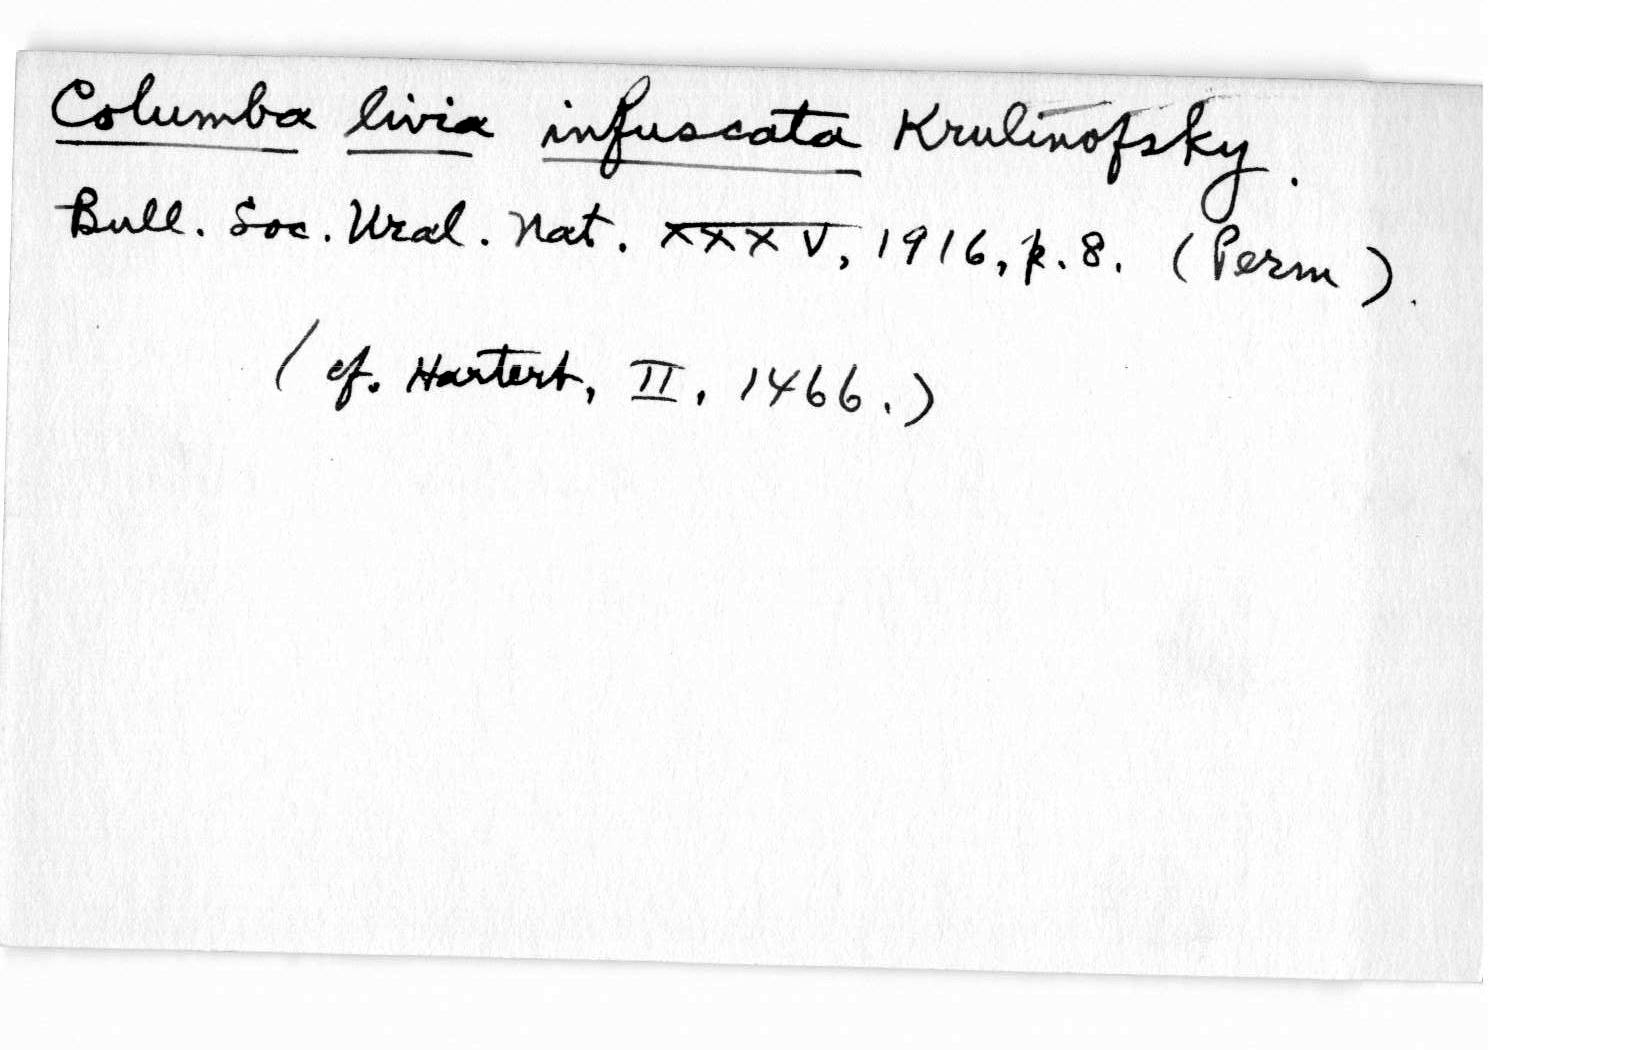 Columba livia infuscata Krulinofsky.
Bull. Soc. Ural. Nat. XXXV, 1916, p. 8. (Perm).
(cf. Hartert, II, 1466.)